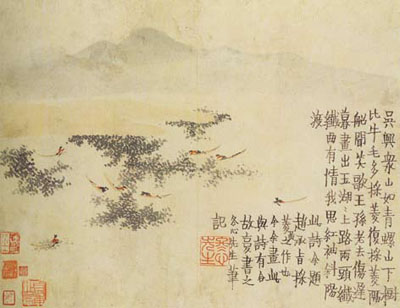 吳興衆山如青螺山下樹
比牛毛多採菱復採菱隔
船聞笑歌王孫老去傷遲
暮畫出玉湖上路兩頭纖
纖曲有情我思紅袖斜陽
渡
此詩余題
趙承旨採
菱圖作也
今余畫此
與詩有合
故寫書之
冬心先生筆
記